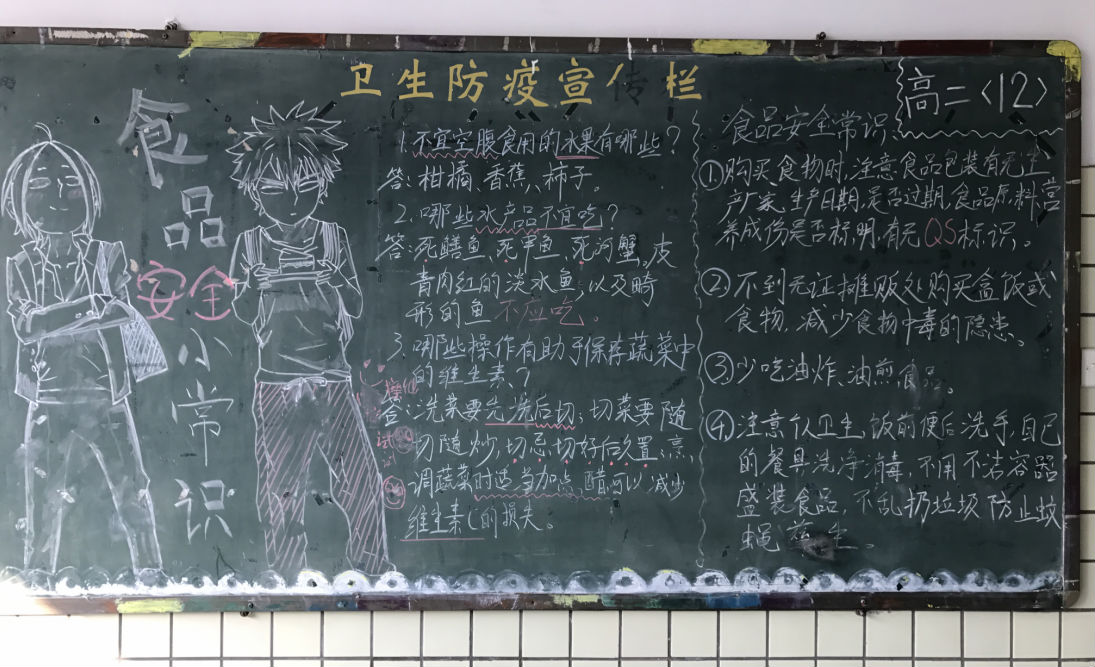 卫生防疫宣传栏
高二〈12〉
食品安全小常识
1.不宜空腹食用的水果有哪些?
答:柑橘、香蕉、柿子。
2.哪些水产品不宜吃?
答:死鳝鱼、死甲鱼、死河蟹。皮
青肉红的淡水鱼,以及畸
形的鱼不应吃。
3.哪些操作有助于保存蔬菜中
的维生素?
答:洗菜要先洗后切;切菜要随
切随炒,切忌切好后久置;烹
调蔬菜时适当加点醋可以减少
维生素C的损失。
食品安全常识:
①购买食物时,注意食品包装有无生
产厂家,生产日期,是否过期,食品原料,营
养成份是否标明,有无QS标识。
②不到无证摊贩处购买盒饭或
食物,减少食物中毒的隐患。
③少吃油炸、油煎食品。
④注意个人卫生,饭前便后洗手,自己
的餐具洗净消毒,不用不洁容器
盛装食品,不乱扔垃圾防止蚊
蝇 生。